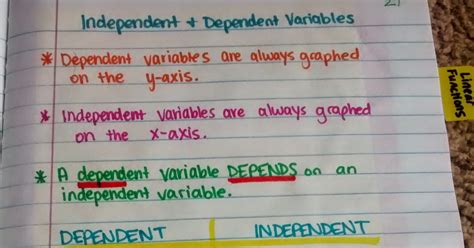 21
Independent + Dependent Variables
* Dependent variables are always graphed
on the y-axis.
* Independent variables are always graphed
on the x-axis.
* A dependent variable DEPENDS on an
independent variable.
DEPENDENT INDEPENDENT
Linear
Functions